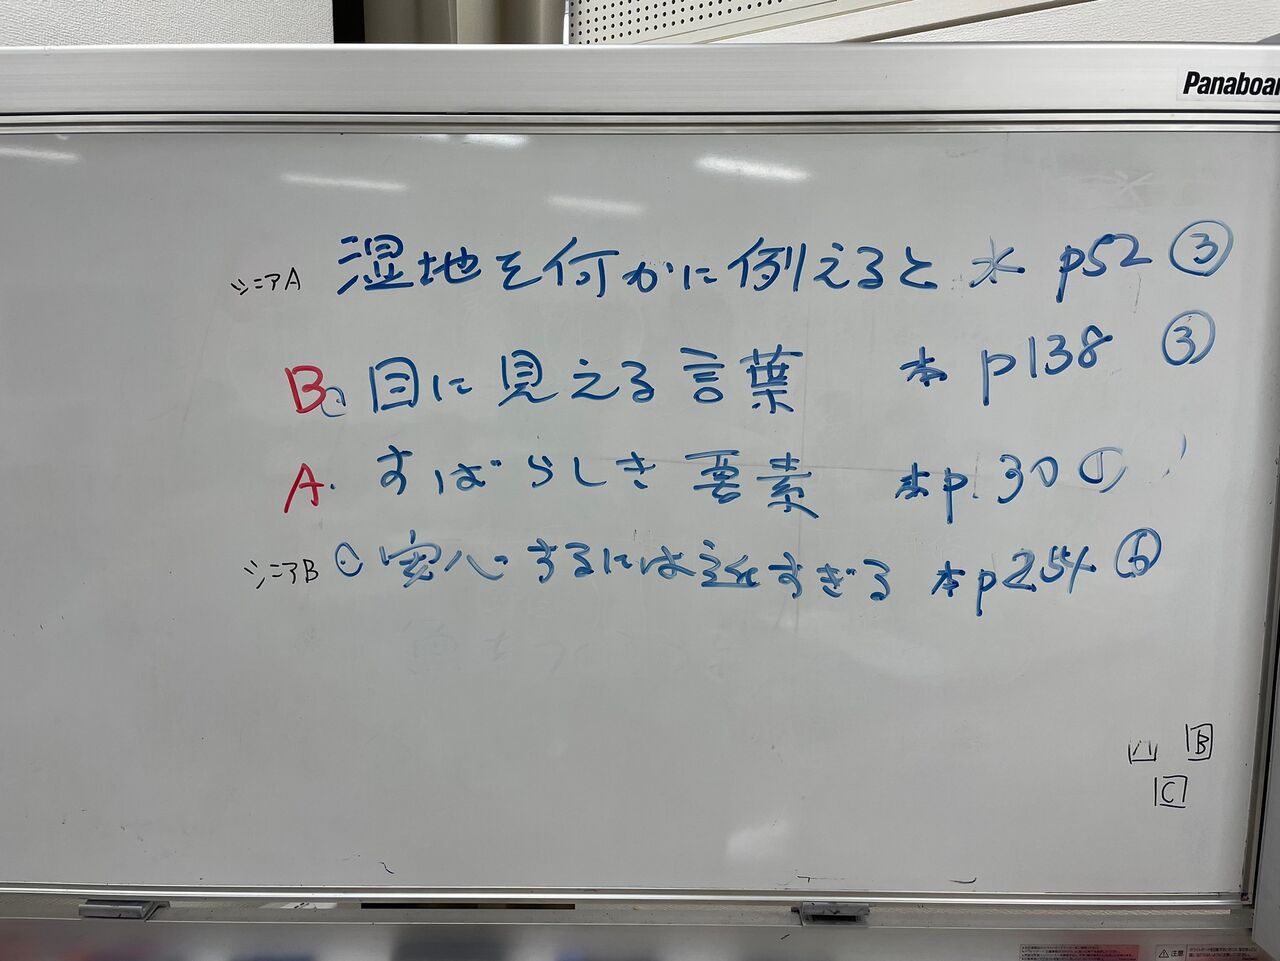 Panaboar
シニアA 湿地を何かに例えると 水 p52 ③
B 目に見える言葉 本 p138 ③
A. すばらしき要素 本p.30 ①
シニアB 安心するには近すぎる 本p254 ⑥
B
C
注意